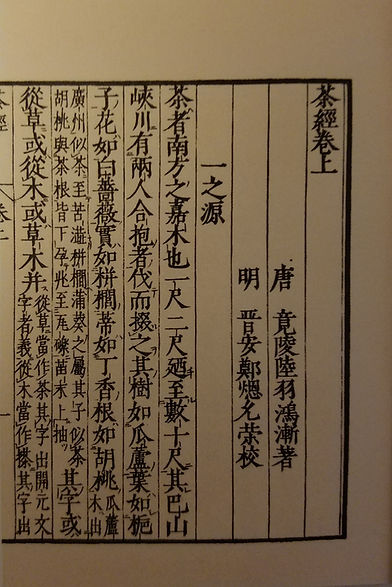 茶經卷上
唐 竟陵陸羽鴻漸著
明 晉安鄭熜允榮校
一之源
茶者南方之嘉木也一尺二尺廼至數十尺其巴山
峽川有兩人合抱者伐而掇之其樹如瓜蘆葉如梔
子花如白薔薇實如栟櫚蒂如丁香根如胡桃
瓜蘆
木出
廣州似茶至苦澁栟櫚蒲葵之屬其子似茶
胡桃與茶根皆下孕兆至瓦礫苗木上抽
其字或
從草或從木或草木并
從草當作茶其字出開元文
字者義從木當作搽其字出